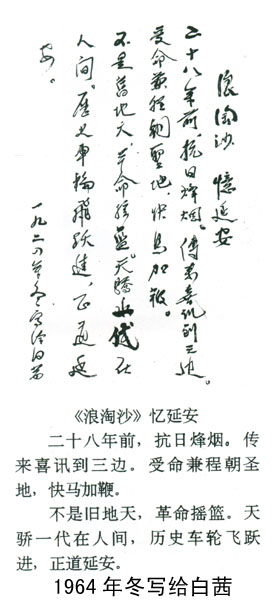 浪淘沙 憶延安
二十八年前,抗日烽烟。傳来喜訊到三边。
受命兼程朝聖地,快馬加鞭。
不是舊地天,革命摇篮。天驕一代在
人间。歷史車輪飛跃進,正道延
安。
一九六四年冬写给白茜
《浪淘沙》忆延安
二十八年前,抗日烽烟。传
来喜讯到三边。受命兼程朝圣
地,快马加鞭。
不是旧地天,革命摇篮。天
骄一代在人间,历史车轮飞跃
进,正道延安。
1964年冬写给白茜